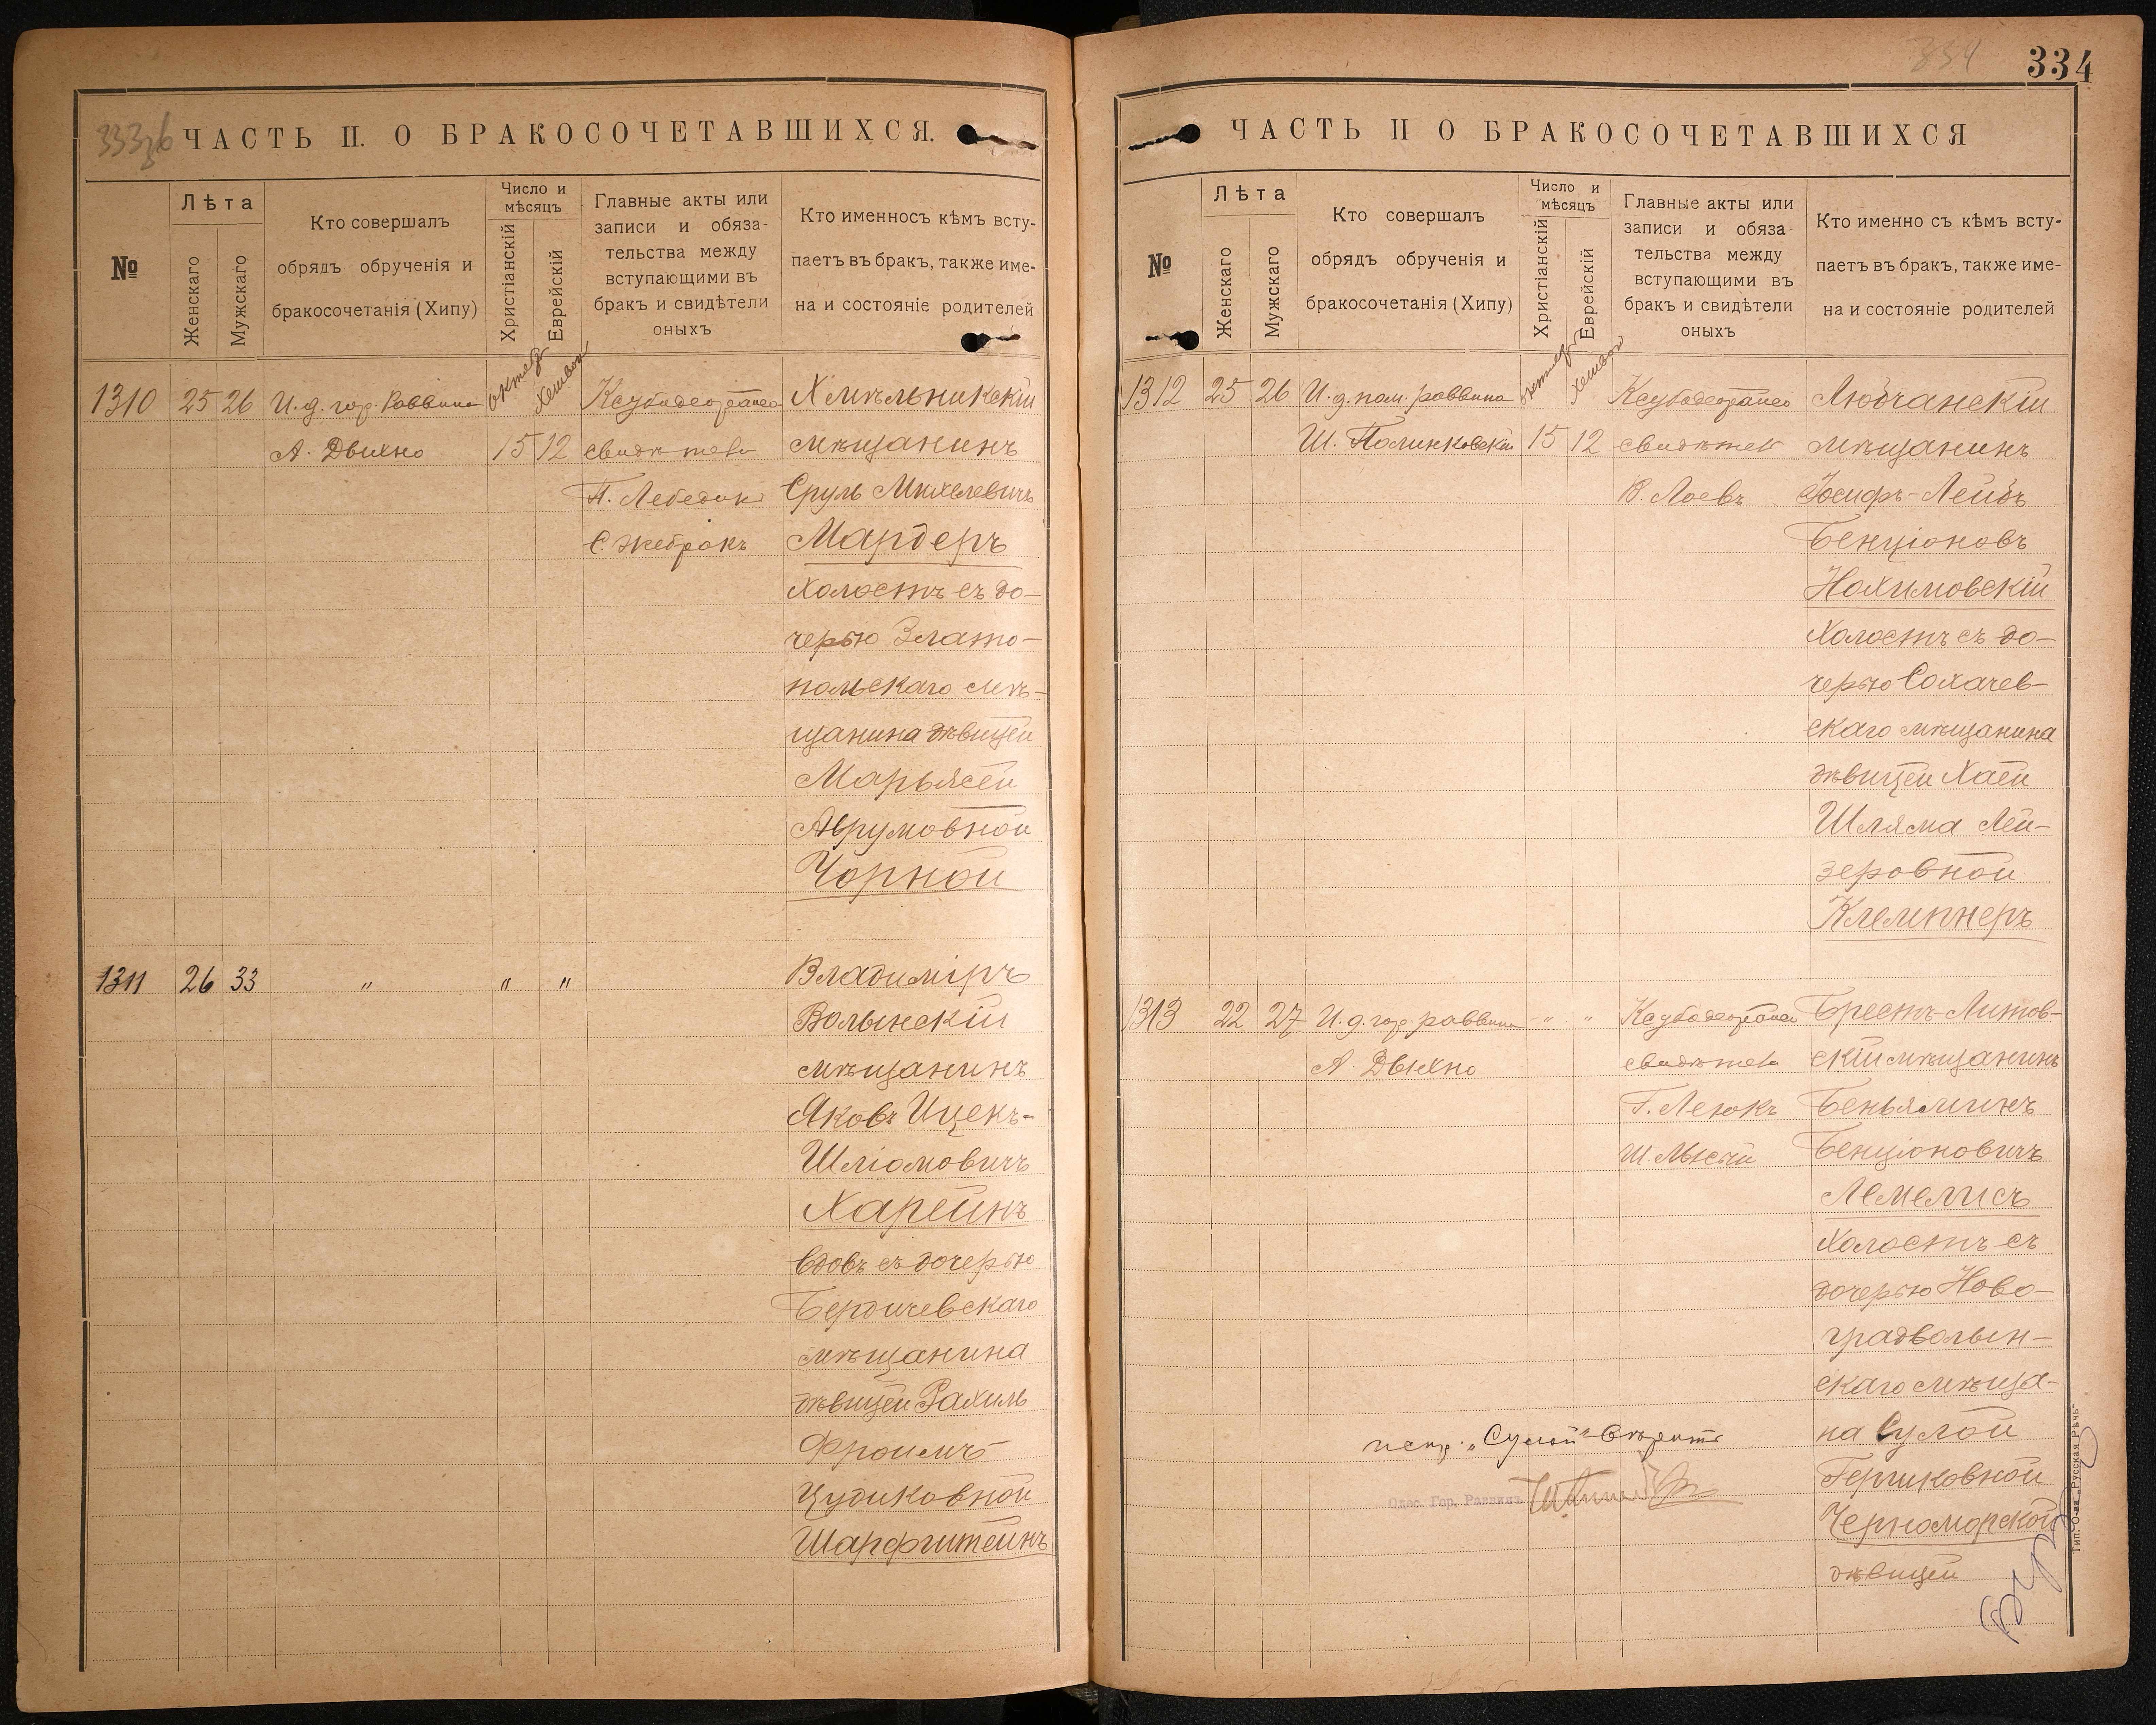 333 зв
ЧАСТЬ II. О БРАКОСОЧЕТАВШИХСЯ.
№
Лѣта
Женскаго
Мужскаго
Кто совершалъ
обрядъ обрученія и
бракосочетанія (Хипу)
Число и
мѣсяцъ
Христіанскій
Еврейскій
Главные акты или
записи и обяза-
тельства между
вступающими въ
бракъ и свидѣтели
оныхъ
Кто именносъ кѣмъ всту-
паетъ въ бракъ, также име-
на и состояніе родителей
1310 25 26 И.д. гор. Раввина
А. Двихно
октяб
Хешвон
15 12
свидѣтели
П. Лебедик
С. Жебракъ
Хмѣльникскій
мѣщанинъ
Сруль Михелевичъ
Мардеръ
Холостъ съ до-
черью Злато-
польскаго мѣ-
щанина дѣвицей
Марьясей
Аврумовной
Чорной
1311 26 33 " " "
Владимiръ
Волынскій
мѣщанинъ
Яковъ Ицекъ-
Шліомовичъ
Харейнъ
вдовъ съ дочерью
Бердичевскаго
мѣщанина
дѣвицей Рахиль
Фроимъ-
Цудиковной
Шарфштейнъ
334
334
ЧАСТЬ II О БРАКОСОЧЕТАВШИХСЯ
№
Лѣта
Женскаго
Мужскаго
Кто совершалъ
обрядъ обрученія и
бракосочетанія (Хипу)
Число и
мѣсяцъ
Христіанскій
Еврейскій
Главные акты или
записи и обяза-
тельства между
вступающими въ
бракъ и свидѣтели
оныхъ
Кто именно съ кѣмъ всту-
паетъ въ бракъ, также име-
на и состояніе родителей
1312 25 26 И.д. пом. раввина
Ш. Полинковскій
хешвон
15 12
свидѣтел
В. Лоевъ
Любчанскій
мѣщанинъ
Іосифъ-Лейбъ
Бенціоновъ
Нохимовскій
Холостъ съ до-
черью Сохачев-
скаго мѣщанина
дѣвицей Хаей
Шляма Лей-
зеровной
Клемпнеръ
1313 22 27 И.д. гор. раввина " "
А. Двихно
свидѣтели
Г. Леюкъ
Брестъ-Литов-
скій мѣщанинъ
Беньяминъ
Бенціоновичъ
Лемелисъ
Холостъ съ
дочерью Ново-
градволын-
скаго мѣща-
на Сулой
Гершковной
Черноморской
дѣвицей
испр. „Сулой“
Одес. Гор. Раввинъ
Тип. О-ва „Русская Рѣчь“